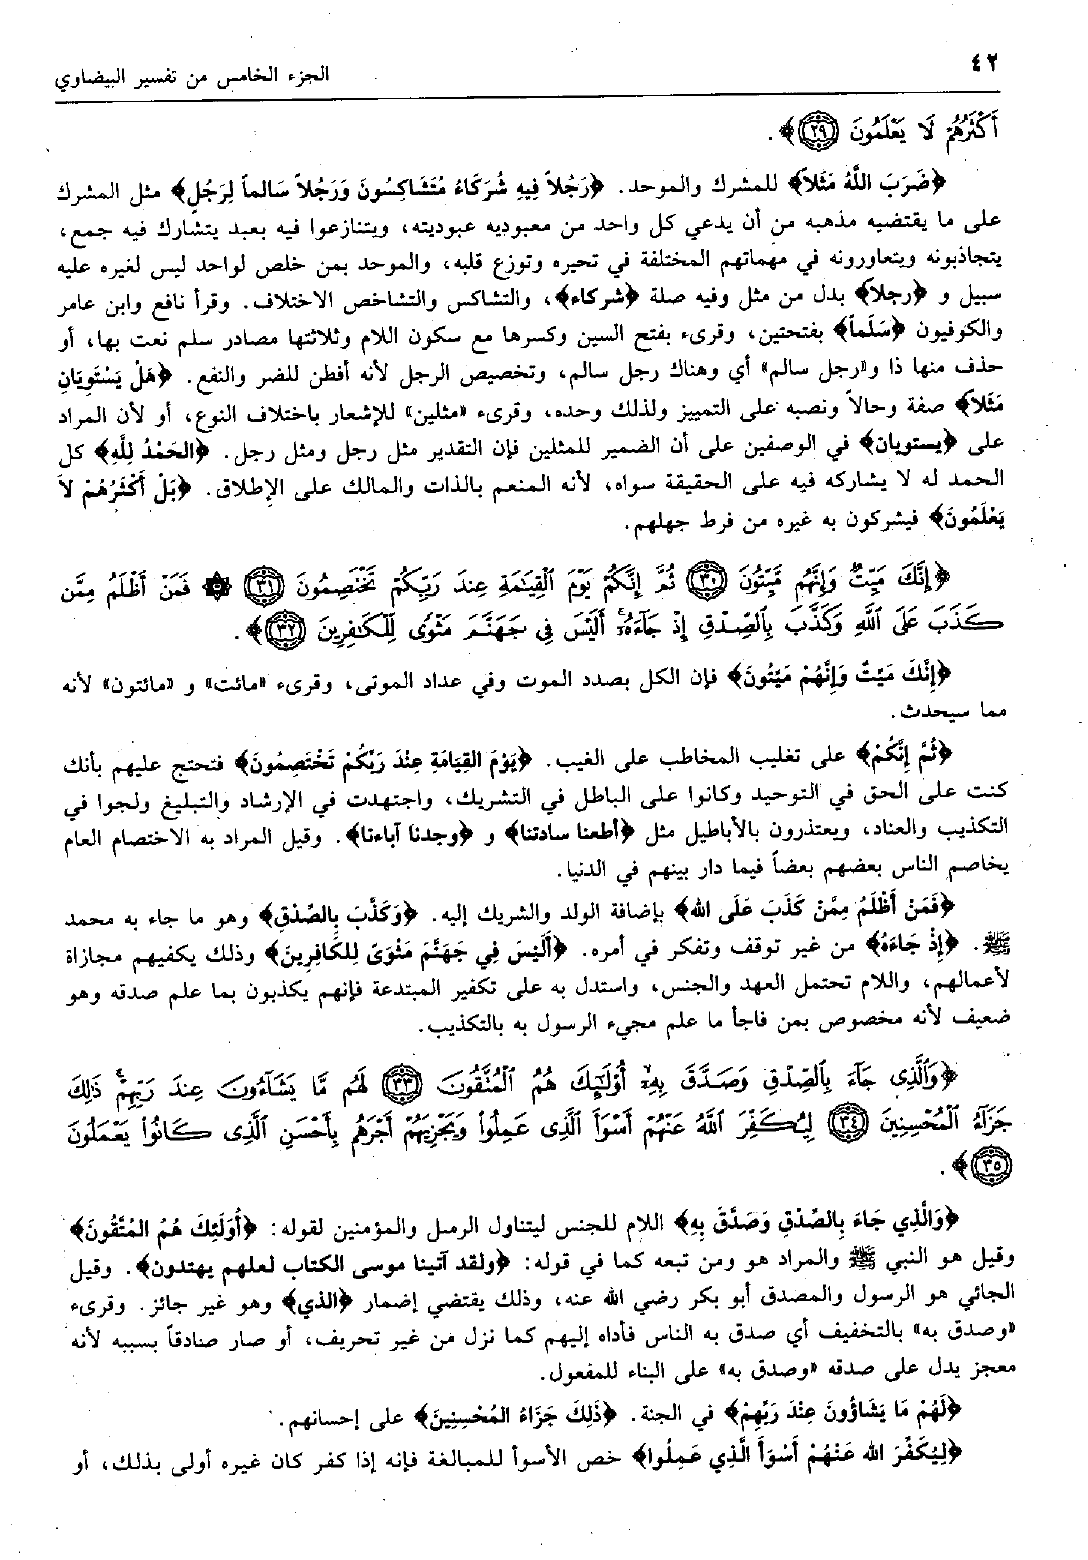 ٤٢
الجزء الخامس من تفسير البيضاوي
أَكْثَرُهُمْ لَا يَعْلَمُونَ ﴿٢٩﴾﴾.
﴿ضَرَبَ اللَّهُ مَثَلاً﴾ للمشرك والموحد. ﴿رَجُلاً فِيهِ شُرَكَاءُ مُتَشَاكِسُونَ وَرَجُلاً سَالماً لِرَجُلٍ﴾ مثل المشرك
على ما يقتضيه مذهبه من أن يدعي كل واحد من معبوديه عبوديته، ويتنازعوا فيه بعبد يتشارك فيه جمع،
يتجاذبونه ويتعاورونه في مهماتهم المختلفة في تحيره وتوزع قلبه، والموحد بمن خلص لواحد ليس لغيره عليه
سبيل و ﴿رجلاً﴾ بدل من مثل وفيه صلة ﴿شركاء﴾، والتشاكس والتشاخص الاختلاف. وقرأ نافع وابن عامر
والكوفيون ﴿سَلَماً﴾ بفتحتين، وقرىء بفتح السين وكسرها مع سكون اللام وثلاثتها مصادر سلم نعت بها، أو
حذف منها ذا و«رجل سالم» أي وهناك رجل سالم، وتخصيص الرجل لأنه أفطن للضر والنفع. ﴿هَلْ يَسْتَوِيَانِ
مَثَلاً﴾ صفة وحالاً ونصبه على التمييز ولذلك وحده، وقرىء «مثلين» للإشعار باختلاف النوع، أو لأن المراد
على ﴿يستويان﴾ في الوصفين على أن الضمير للمثلين فإن التقدير مثل رجل ومثل رجل. ﴿الحَمْدُ لِلَّهِ﴾ كل
الحمد له لا يشاركه فيه على الحقيقة سواه، لأنه المنعم بالذات والمالك على الإطلاق. ﴿بَلْ أَكْثَرُهُمْ لاَ
يَعْلَمُونَ﴾ فيشركون به غيره من فرط جهلهم.
﴿إِنَّكَ مَيِّتٌ وَإِنَّهُم مَّيِّتُونَ ﴿٣٠﴾ ثُمَّ إِنَّكُمْ يَوْمَ ٱلْقِيَٰمَةِ عِندَ رَبِّكُمْ تَخْتَصِمُونَ ﴿٣١﴾ ۞ فَمَنْ أَظْلَمُ مِمَّن
كَذَبَ عَلَى ٱللَّهِ وَكَذَّبَ بِٱلصِّدْقِ إِذْ جَآءَهُۥٓ أَلَيْسَ فِى جَهَنَّمَ مَثْوًى لِّلْكَٰفِرِينَ ﴿٣٢﴾﴾.
﴿إِنَّكَ مَيِّتٌ وَإِنَّهُمْ مَيِّتُونَ﴾ فإن الكل بصدد الموت وفي عداد الموتى، وقرىء «مائت» و «مائتون» لأنه
مما سيحدث.
﴿ثُمَّ إِنَّكُمْ﴾ على تغليب المخاطب على الغيب. ﴿يَوْمَ القِيَامَةِ عِنْدَ رَبِّكُمْ تَخْتَصِمُونَ﴾ فتحتج عليهم بأنك
كنت على الحق في التوحيد وكانوا على الباطل في التشريك، واجتهدت في الإرشاد والتبليغ ولجوا في
التكذيب والعناد، ويعتذرون بالأباطيل مثل ﴿أطعنا سادتنا﴾ و ﴿وجدنا آباءنا﴾. وقيل المراد به الاختصام العام
يخاصم الناس بعضهم بعضاً فيما دار بينهم في الدنيا.
﴿فَمَنْ أَظْلَمُ مِمَّنْ كَذَبَ عَلَى الله﴾ بإضافة الولد والشريك إليه. ﴿وَكَذَّبَ بِالصِّدْقِ﴾ وهو ما جاء به محمد
ﷺ. ﴿إِذْ جَاءَهُ﴾ من غير توقف وتفكر في أمره. ﴿أَلَيْسَ فِي جَهَنَّمَ مَثْوَىً لِلكَافِرِينَ﴾ وذلك يكفيهم مجازاة
لأعمالهم، واللام تحتمل العهد والجنس، واستدل به على تكفير المبتدعة فإنهم يكذبون بما علم صدقه وهو
ضعيف لأنه مخصوص بمن فاجأ ما علم مجيء الرسول به بالتكذيب.
﴿وَٱلَّذِى جَآءَ بِٱلصِّدْقِ وَصَدَّقَ بِهِۦٓ أُوْلَٰٓئِكَ هُمُ ٱلْمُتَّقُونَ ﴿٣٣﴾ لَهُم مَّا يَشَآءُونَ عِندَ رَبِّهِمْ ذَٰلِكَ
جَزَآءُ ٱلْمُحْسِنِينَ ﴿٣٤﴾ لِيُكَفِّرَ ٱللَّهُ عَنْهُمْ أَسْوَأَ ٱلَّذِى عَمِلُوا۟ وَيَجْزِيَهُمْ أَجْرَهُم بِأَحْسَنِ ٱلَّذِى كَانُوا۟ يَعْمَلُونَ
﴿٣٥﴾﴾.
﴿وَالَّذِي جَاءَ بِالصِّدْقِ وَصَدَّقَ بِهِ﴾ اللام للجنس ليتناول الرسل والمؤمنين لقوله: ﴿أُوَلَئِكَ هُمُ المُتَّقُونَ﴾
وقيل هو النبي ﷺ والمراد هو ومن تبعه كما في قوله: ﴿ولقد آتينا موسى الكتاب لعلهم يهتدون﴾. وقيل
الجائي هو الرسول والمصدق أبو بكر رضي الله عنه، وذلك يقتضي إضمار ﴿الذي﴾ وهو غير جائز. وقرىء
«وصدق به» بالتخفيف أي صدق به الناس فأداه إليهم كما نزل من غير تحريف، أو صار صادقاً بسببه لأنه
معجز يدل على صدقه «وصدق به» على البناء للمفعول.
﴿لَهُمْ مَا يَشَاؤُونَ عِنْدَ رَبِّهِمْ﴾ في الجنة. ﴿ذَلِكَ جَزَاءُ المُحْسِنِينَ﴾ على إحسانهم.
﴿لِيُكَفِّرَ الله عَنْهُمْ أَسْوَأَ الَّذِي عَمِلُوا﴾ خص الأسوأ للمبالغة فإنه إذا كفر كان غيره أولى بذلك، أو